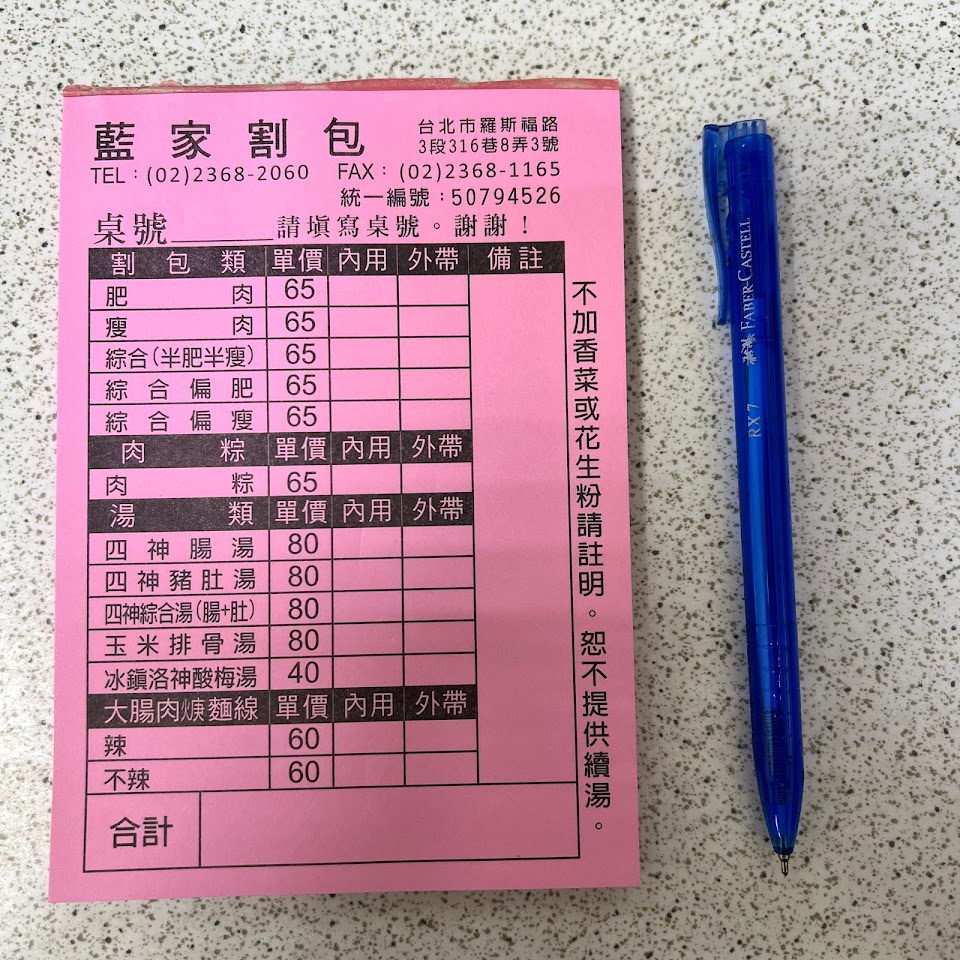 藍家割包
台北市羅斯福路
3段316巷8弄3號
TEL：(02)2368-2060 FAX：(02)2368-1165
統一編號：50794526
桌號______請填寫桌號。謝謝！
割包類 單價 內用 外帶 備註
肥肉 65
瘦肉 65
綜合(半肥半瘦) 65
綜合偏肥 65
綜合偏瘦 65
肉粽 單價 內用 外帶
肉粽 65
湯類 單價 內用 外帶
四神腸湯 80
四神豬肚湯 80
四神綜合湯(腸+肚) 80
玉米排骨湯 80
冰鎮洛神酸梅湯 40
大腸肉焿麵線 單價 內用 外帶
辣 60
不辣 60
合計
不加香菜或花生粉請註明。恕不提供續湯。
FABER-CASTELL
RX 7